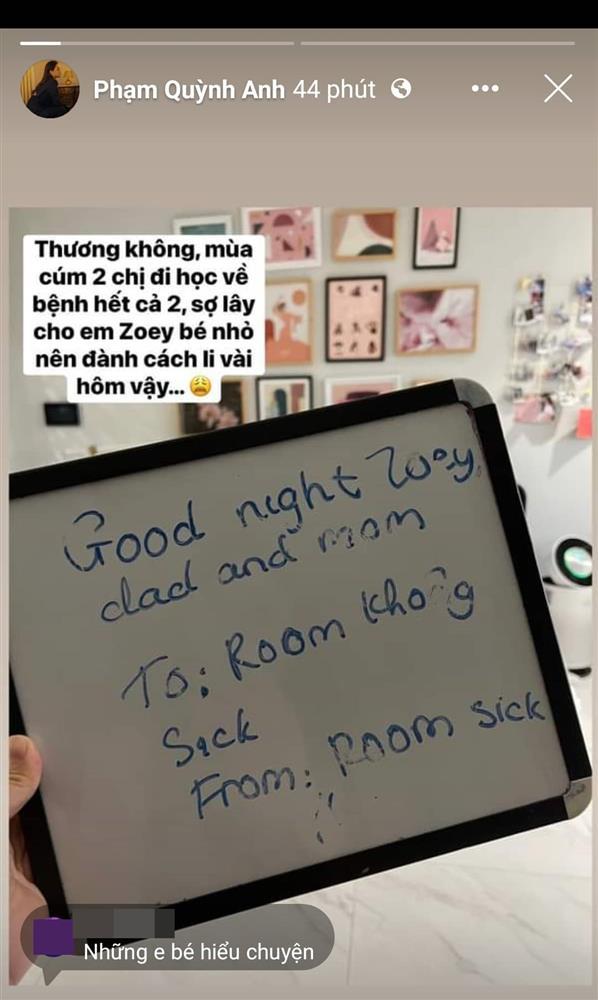 Phạm Quỳnh Anh 44 phút
Thương không, mùa
cúm 2 chị đi học về
bệnh hết cả 2, sợ lây
cho em Zoey bé nhỏ
nên đành cách li vài
hôm vậy... 😩
Good night Zoey,
dad and mom
To: Room không
Sick
From: Room sick
Những e bé hiểu chuyện